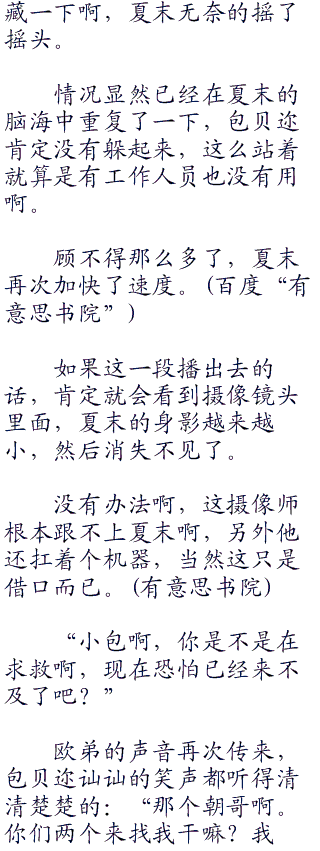 藏一下啊，夏末无奈的摇了
摇头。
情况显然已经在夏末的
脑海中重复了一下，包贝迩
肯定没有躲起来，这么站着
就算是有工作人员也没有用
啊。
顾不得那么多了，夏末
再次加快了速度。(百度“有
意思书院”)
如果这一段播出去的
话，肯定就会看到摄像镜头
里面，夏末的身影越来越
小，然后消失不见了。
没有办法啊，这摄像师
根本跟不上夏末啊，另外他
还扛着个机器，当然这只是
借口而已。(有意思书院)
“小包啊，你是不是在
求救啊，现在恐怕已经来不
及了吧？”
欧弟的声音再次传来，
包贝迩讪讪的笑声都听得清
清楚楚的：“那个朝哥啊。
你们两个来找我干嘛？我